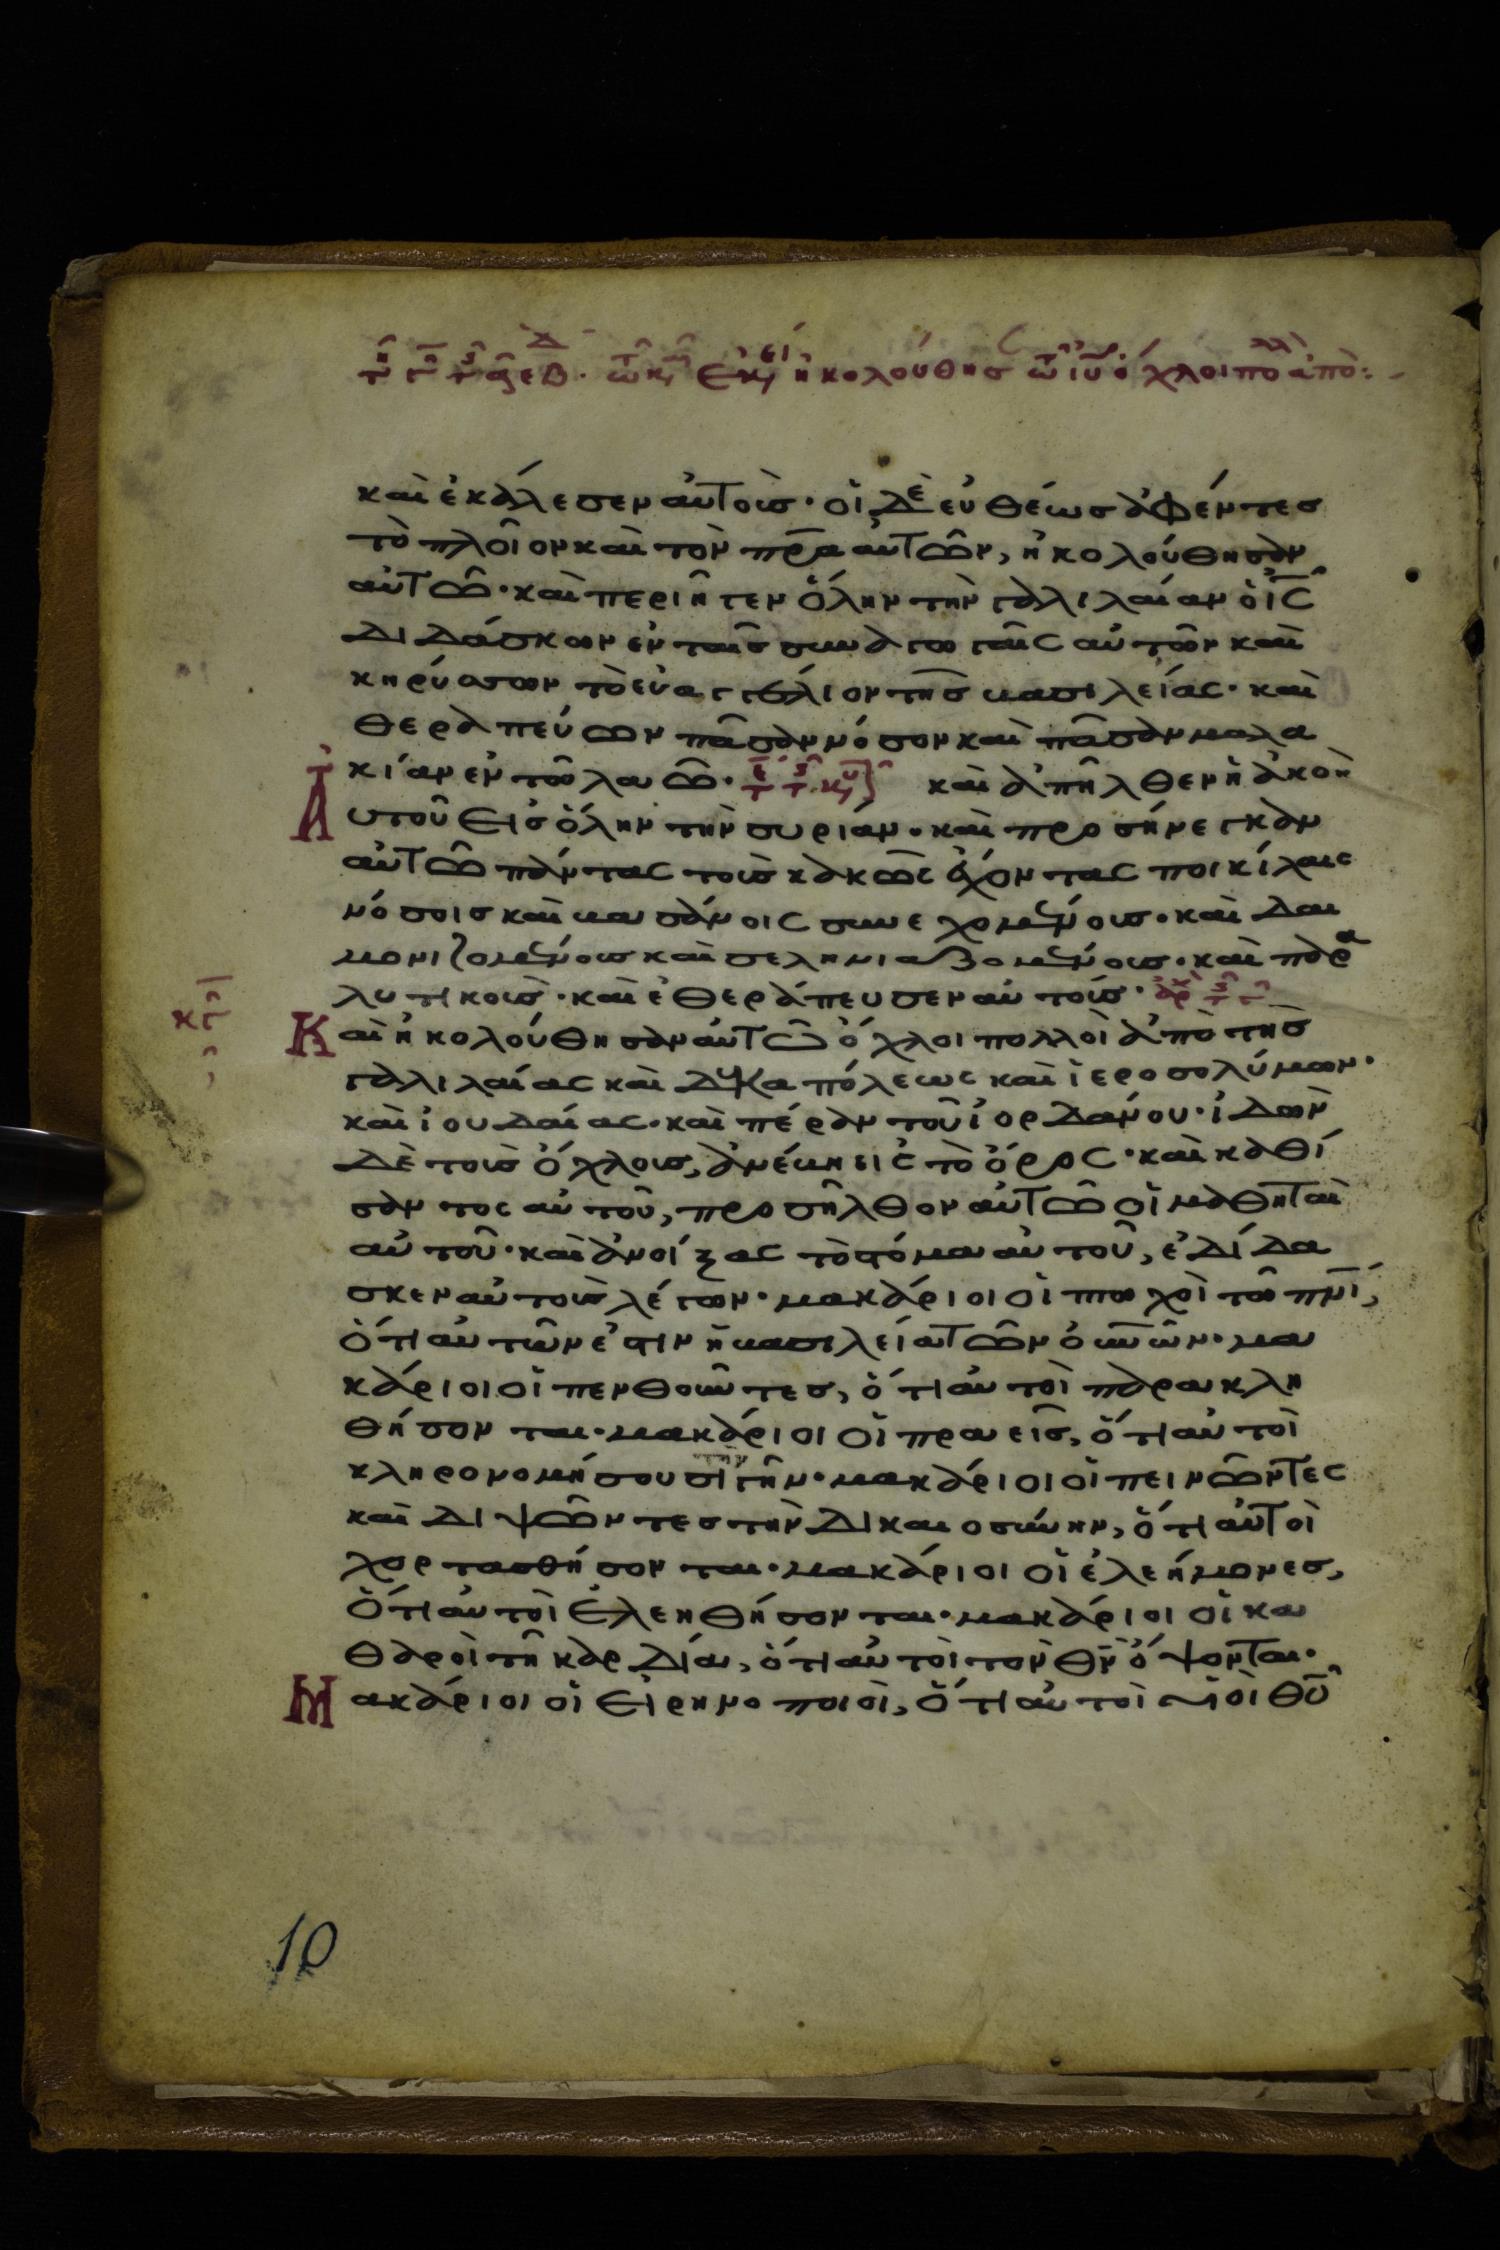 τῶ κ, Ἐκ, ἠκολούθησ τῶ ιῡ ὄχλοι πολλοὶ ἀπὸ:-
καὶ ἐκάλεσεν αὐτοὺς· οἱ δὲ εὐθέως ἀφέντες
τὸ πλοῖον καὶ τὸν πρ̅α αὐτῶν, ἠκολούθησαν
αὐτῶ· καὶ περιῆγεν ὅλην τὴν γαλιλαίαν ὁ ι̅ς̅
διδάσκων ἐν ταῖς συναγωγαῖς αὐτῶν καὶ
κηρύσσων τὸ εὐαγγέλιον τῆς βασιλείας· καὶ
θεραπεύων πᾶσαν νόσον καὶ πᾶσαν μαλα
κίαν ἐν τῶ λαῶ· καὶ ἀπῆλθεν ἡ ἀκοὴ
Αὐτοῦ εἰς ὅλην τὴν συρίαν· καὶ προσήνεγκαν
αὐτῶ πάντας τοὺς κακῶς ἔχοντας ποικίλαις
νόσοις καὶ βασάνοις συνεχομένους· καὶ δαι
μονιζομένους καὶ σεληνιαζομένους· καὶ παρα
λυτικοὺς· καὶ ἐθεράπευσεν αὐτούς·
Καὶ ἠκολούθησαν αὐτῶ ὄχλοι πολλοὶ ἀπὸ τῆς
γαλιλαίας καὶ δεκαπόλεως καὶ ἱεροσολύμων·
καὶ ἰουδαίας· καὶ πέραν τοῦ ἰορδάνου· ἰδὼν
δὲ τοὺς ὄχλους, ἀνέβη εἰς τὸ ὄρος· καὶ καθί
σαντος αὐτοῦ, προσῆλθον αὐτῶ οἱ μαθηταὶ
αὐτοῦ· καὶ ἀνοίξας τὸ στόμα αὐτοῦ, ἐδίδα
σκεν αὐτοὺς λέγων· μακάριοι οἱ πτωχοὶ τῶ πν̅ι̅,
ὅτι αὐτῶν ἐστιν ἡ βασιλεία τῶν ο̅υ̅νῶν· μα
κάριοι οἱ πενθοῦντες, ὅτι αὐτοὶ παρακλη
θήσονται· μακάριοι οἱ πραεῖς, ὅτι αὐτοὶ
κληρονομήσουσι τὴν γῆν· μακάριοι οἱ πεινῶντες
καὶ διψῶντες τὴν δικαιοσύνην, ὅτι αὐτοὶ
χορτασθήσονται· μακάριοι οἱ ἐλεήμονες,
ὅτι αὐτοὶ ἐλεηθήσονται· μακάριοι οἱ κα
θαροὶ τῆ καρδία, ὅτι αὐτοὶ τὸν θ̅ν̅ ὄψονται·
Μακάριοι οἱ εἰρηνοποιοὶ, ὅτι αὐτοὶ υἱοὶ θ̅υ̅
10